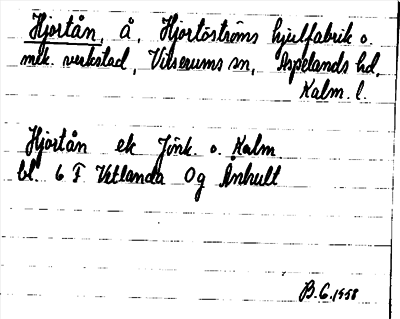 Hjortån, å, Hjortöströms hjulfabrik o.
mek. verkstad, Virserums sn, Aspelands hd.
Kalm. l.
Hjortån ek Jönk. o. Kalm
bl. 6 F Vetlanda Og Ånhult
B.G. 1958